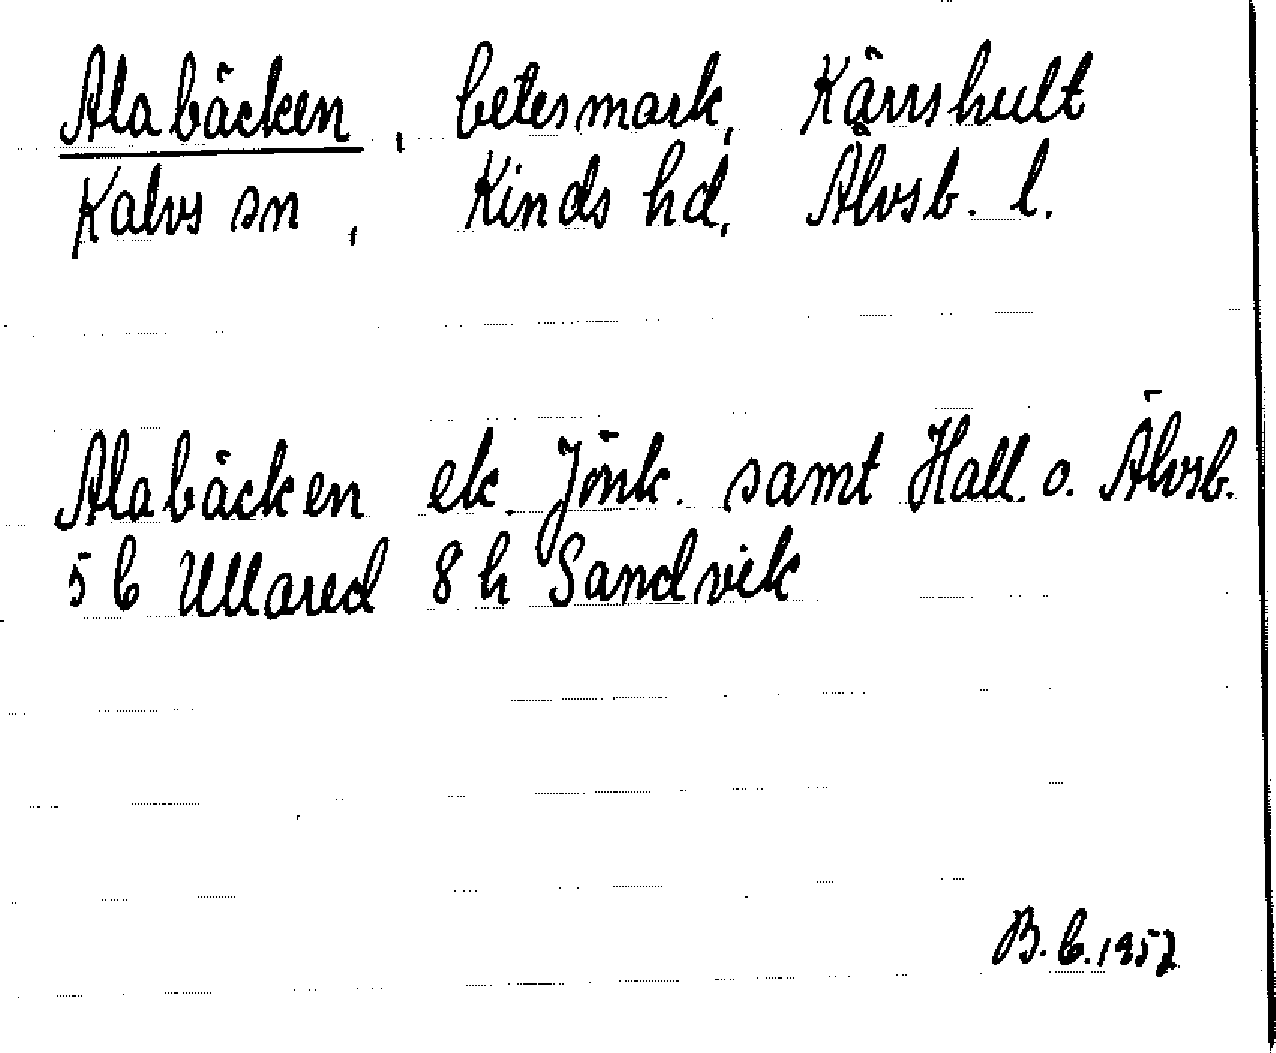 Alabäcken, betesmark, Kärrshult
Kalvs sn, Kinds hd, Älvsb. l.
Alabäcken ek. Jönk. samt Hall. o. Älvsb.
5 b Ullared 8 h Sandvik
B. b. 1957